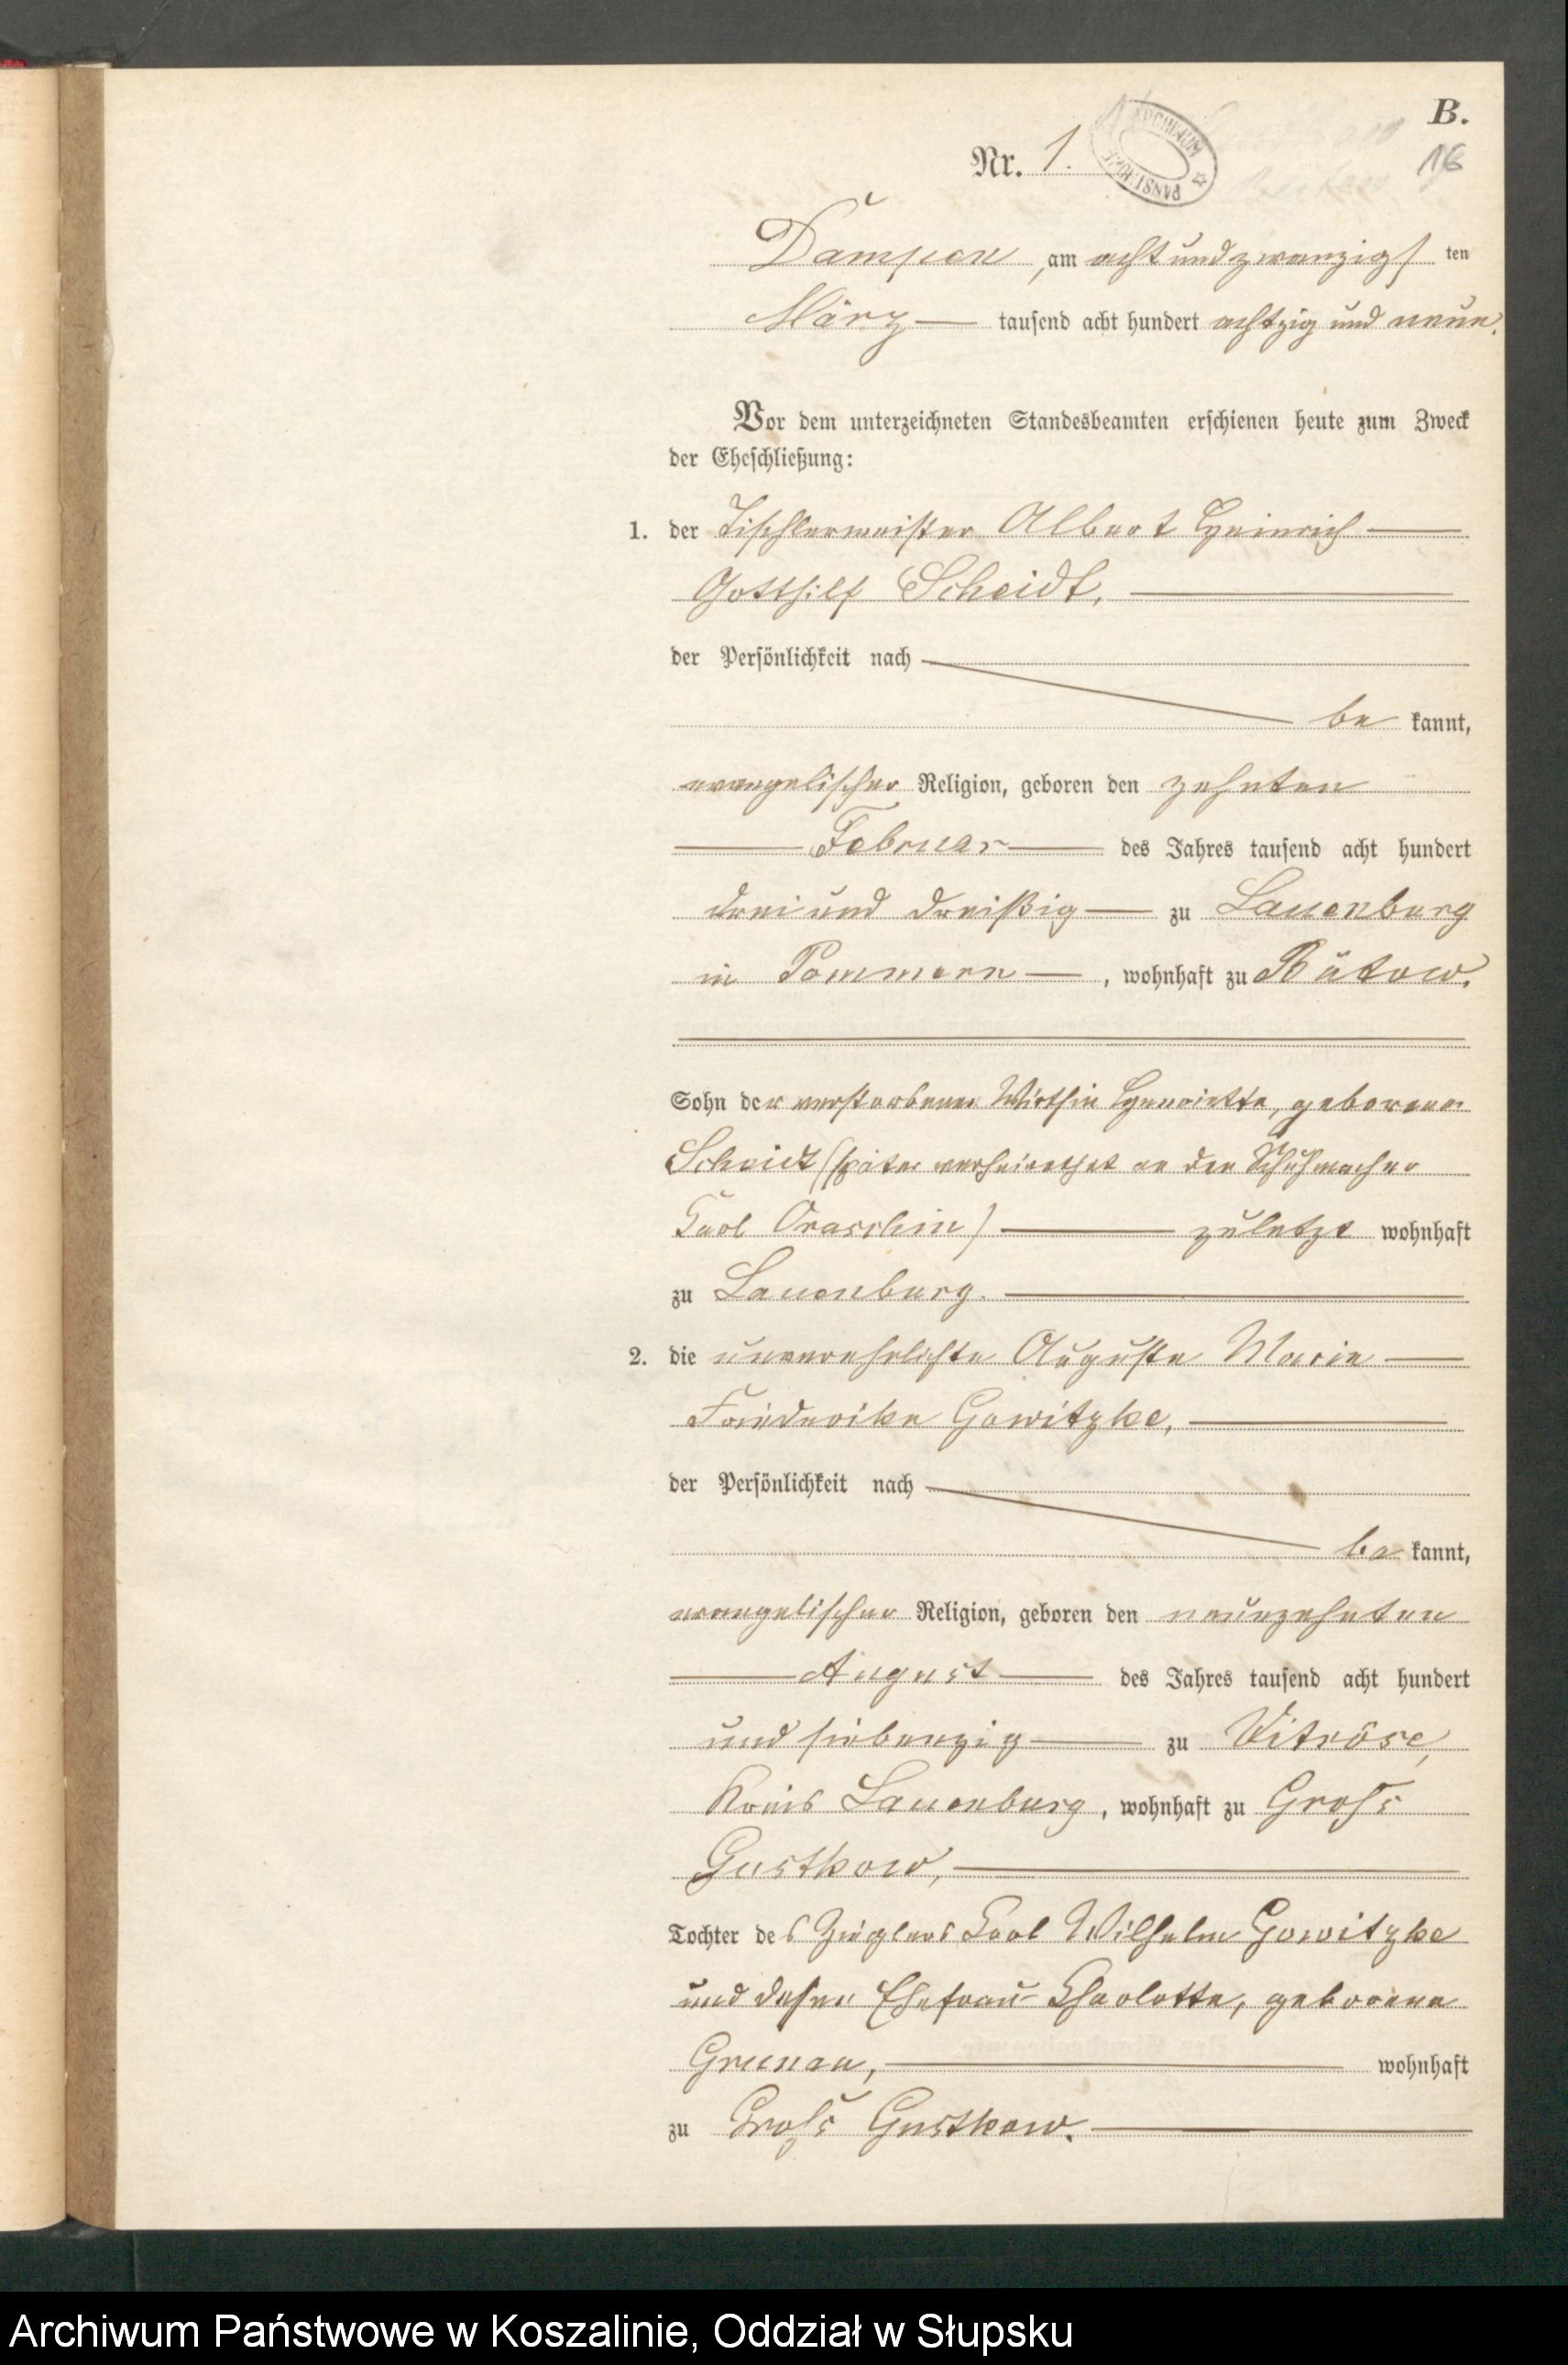 B.
Nr. 1.
16
ARCHIWUM PAŃSTWOWE
Dampen, am acht und zwanzigsten
März tausend acht hundert achtzig und neun.
Vor dem unterzeichneten Standesbeamten erschienen heute zum Zweck
der Eheschließung:
1. der Tischlermeister Albert Heinrich
Gotthilf Scheidt,
der Persönlichkeit nach
be kannt,
evangelischer Religion, geboren den zehnten
Februar des Jahres tausend acht hundert
drei und dreißig zu Lauenburg
in Pommern, wohnhaft zu Bütow.
Sohn der verstorbenen Wirthin Henriette, geborenen
Scheidt (später verheirathet an den Schuhmacher
Karl Draschin) zuletzt wohnhaft
zu Lauenburg.
2. die unverehelichte Auguste Marie
Friederike Gawitzke,
der Persönlichkeit nach
be kannt,
evangelischer Religion, geboren den neunzehnten
August des Jahres tausend acht hundert
und siebenzig zu Vitröse,
Kreis Lauenburg, wohnhaft zu Gross
Gustkow,
Tochter des Zieglers Karl Wilhelm Gawitzke
und dessen Ehefrau Charlotte, geborene
Grunau, wohnhaft
zu Gross Gustkow.
Archiwum Państwowe w Koszalinie, Oddział w Słupsku